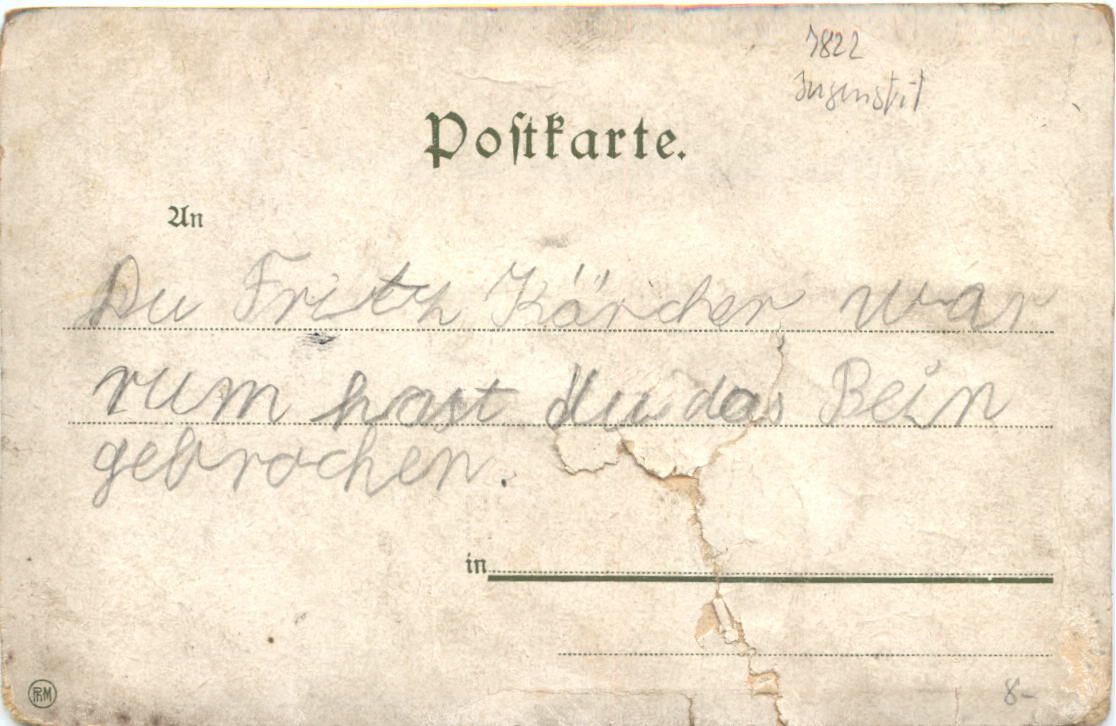 7822
Jugenstil
Postkarte.
An
Du Fritz Kärcher war
rum hast du das Bein
gebrochen.
in
8-